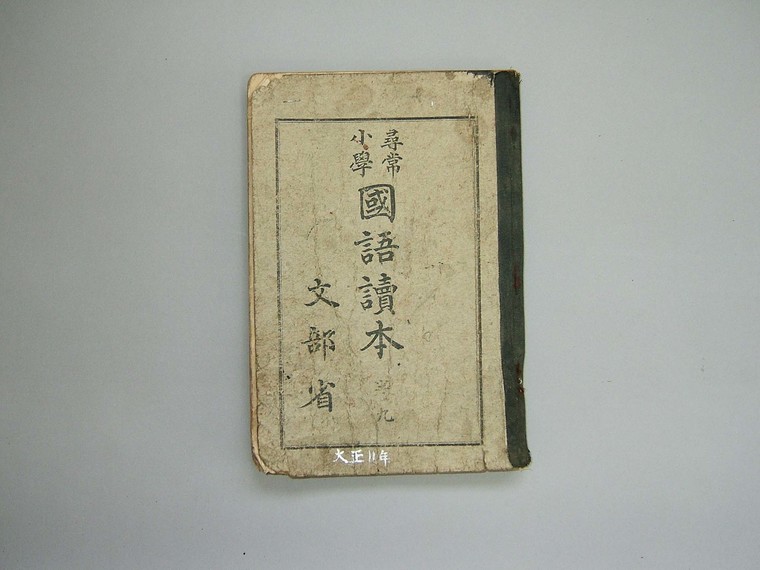 尋常
小學
國語讀本
巻九
文部省
大正11年